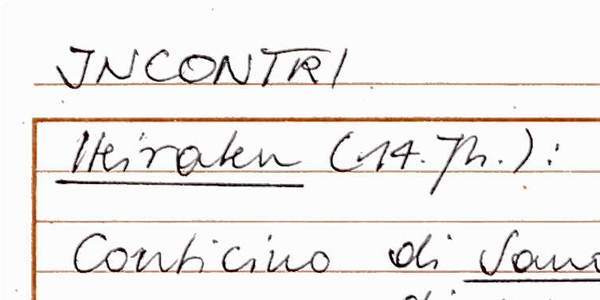 INCONTRI
Heiraten (14. Jh.):
Conticino di
di